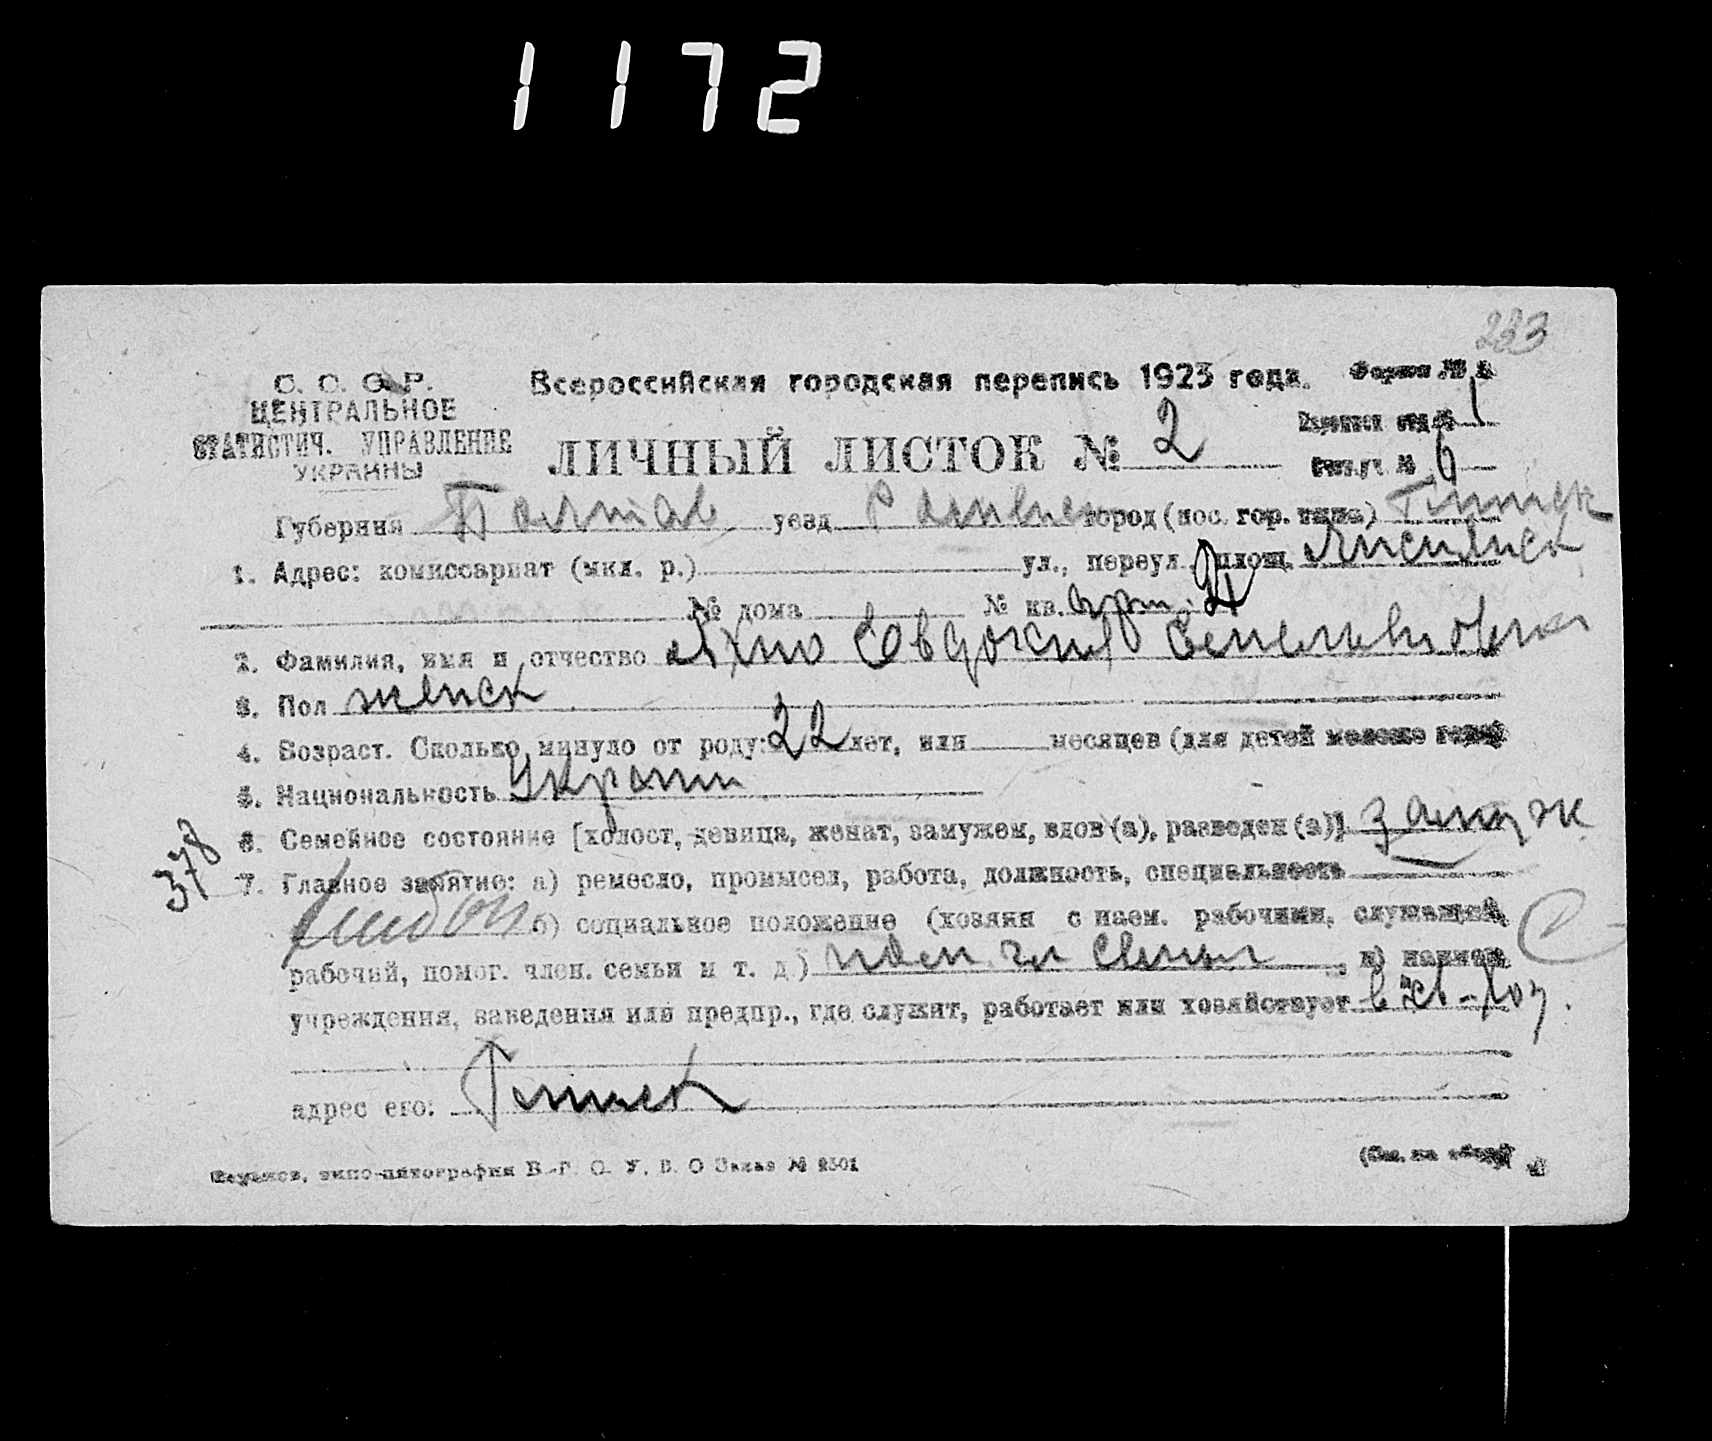 1172
233
С. С. С. Р.
ЦЕНТРАЛЬНОЕ
СТАТИСТИЧ. УПРАВЛЕНИЕ
УКРАИНЫ
Всероссийская городская перепись 1923 года.
Форма №
ЛИЧНЫЙ ЛИСТОК № 2
1
6
Губерния Полтав уезд Роменск город (пос. гор. типа) Глинск
1. Адрес: комиссариат (мил. р.) ул., переул., площ.
№ дома № кв. 24
2. Фамилия, имя и отчество Евдокия
3. Пол женск
4. Возраст. Сколько минуло от роду: 22 лет, или месяцев (для детей моложе года)
5. Национальность Украин
6. Семейное состояние [холост, девица, женат, замужем, вдов (а), разведен (а)] замуж
378
7. Главное занятие: а) ремесло, промысел, работа, должность, специальность
б) социальное положение (хозяин с наем. рабочими, служащий,
рабочий, помог. член. семьи и т. д.) член семьи, в) наимен.
учреждения, заведения или предпр., где служит, работает или хозяйствует
адрес его: Глинск
Харьков, типо-литография В.-Г. О. У. В. О Заказ № 2501
(См. на обор.)